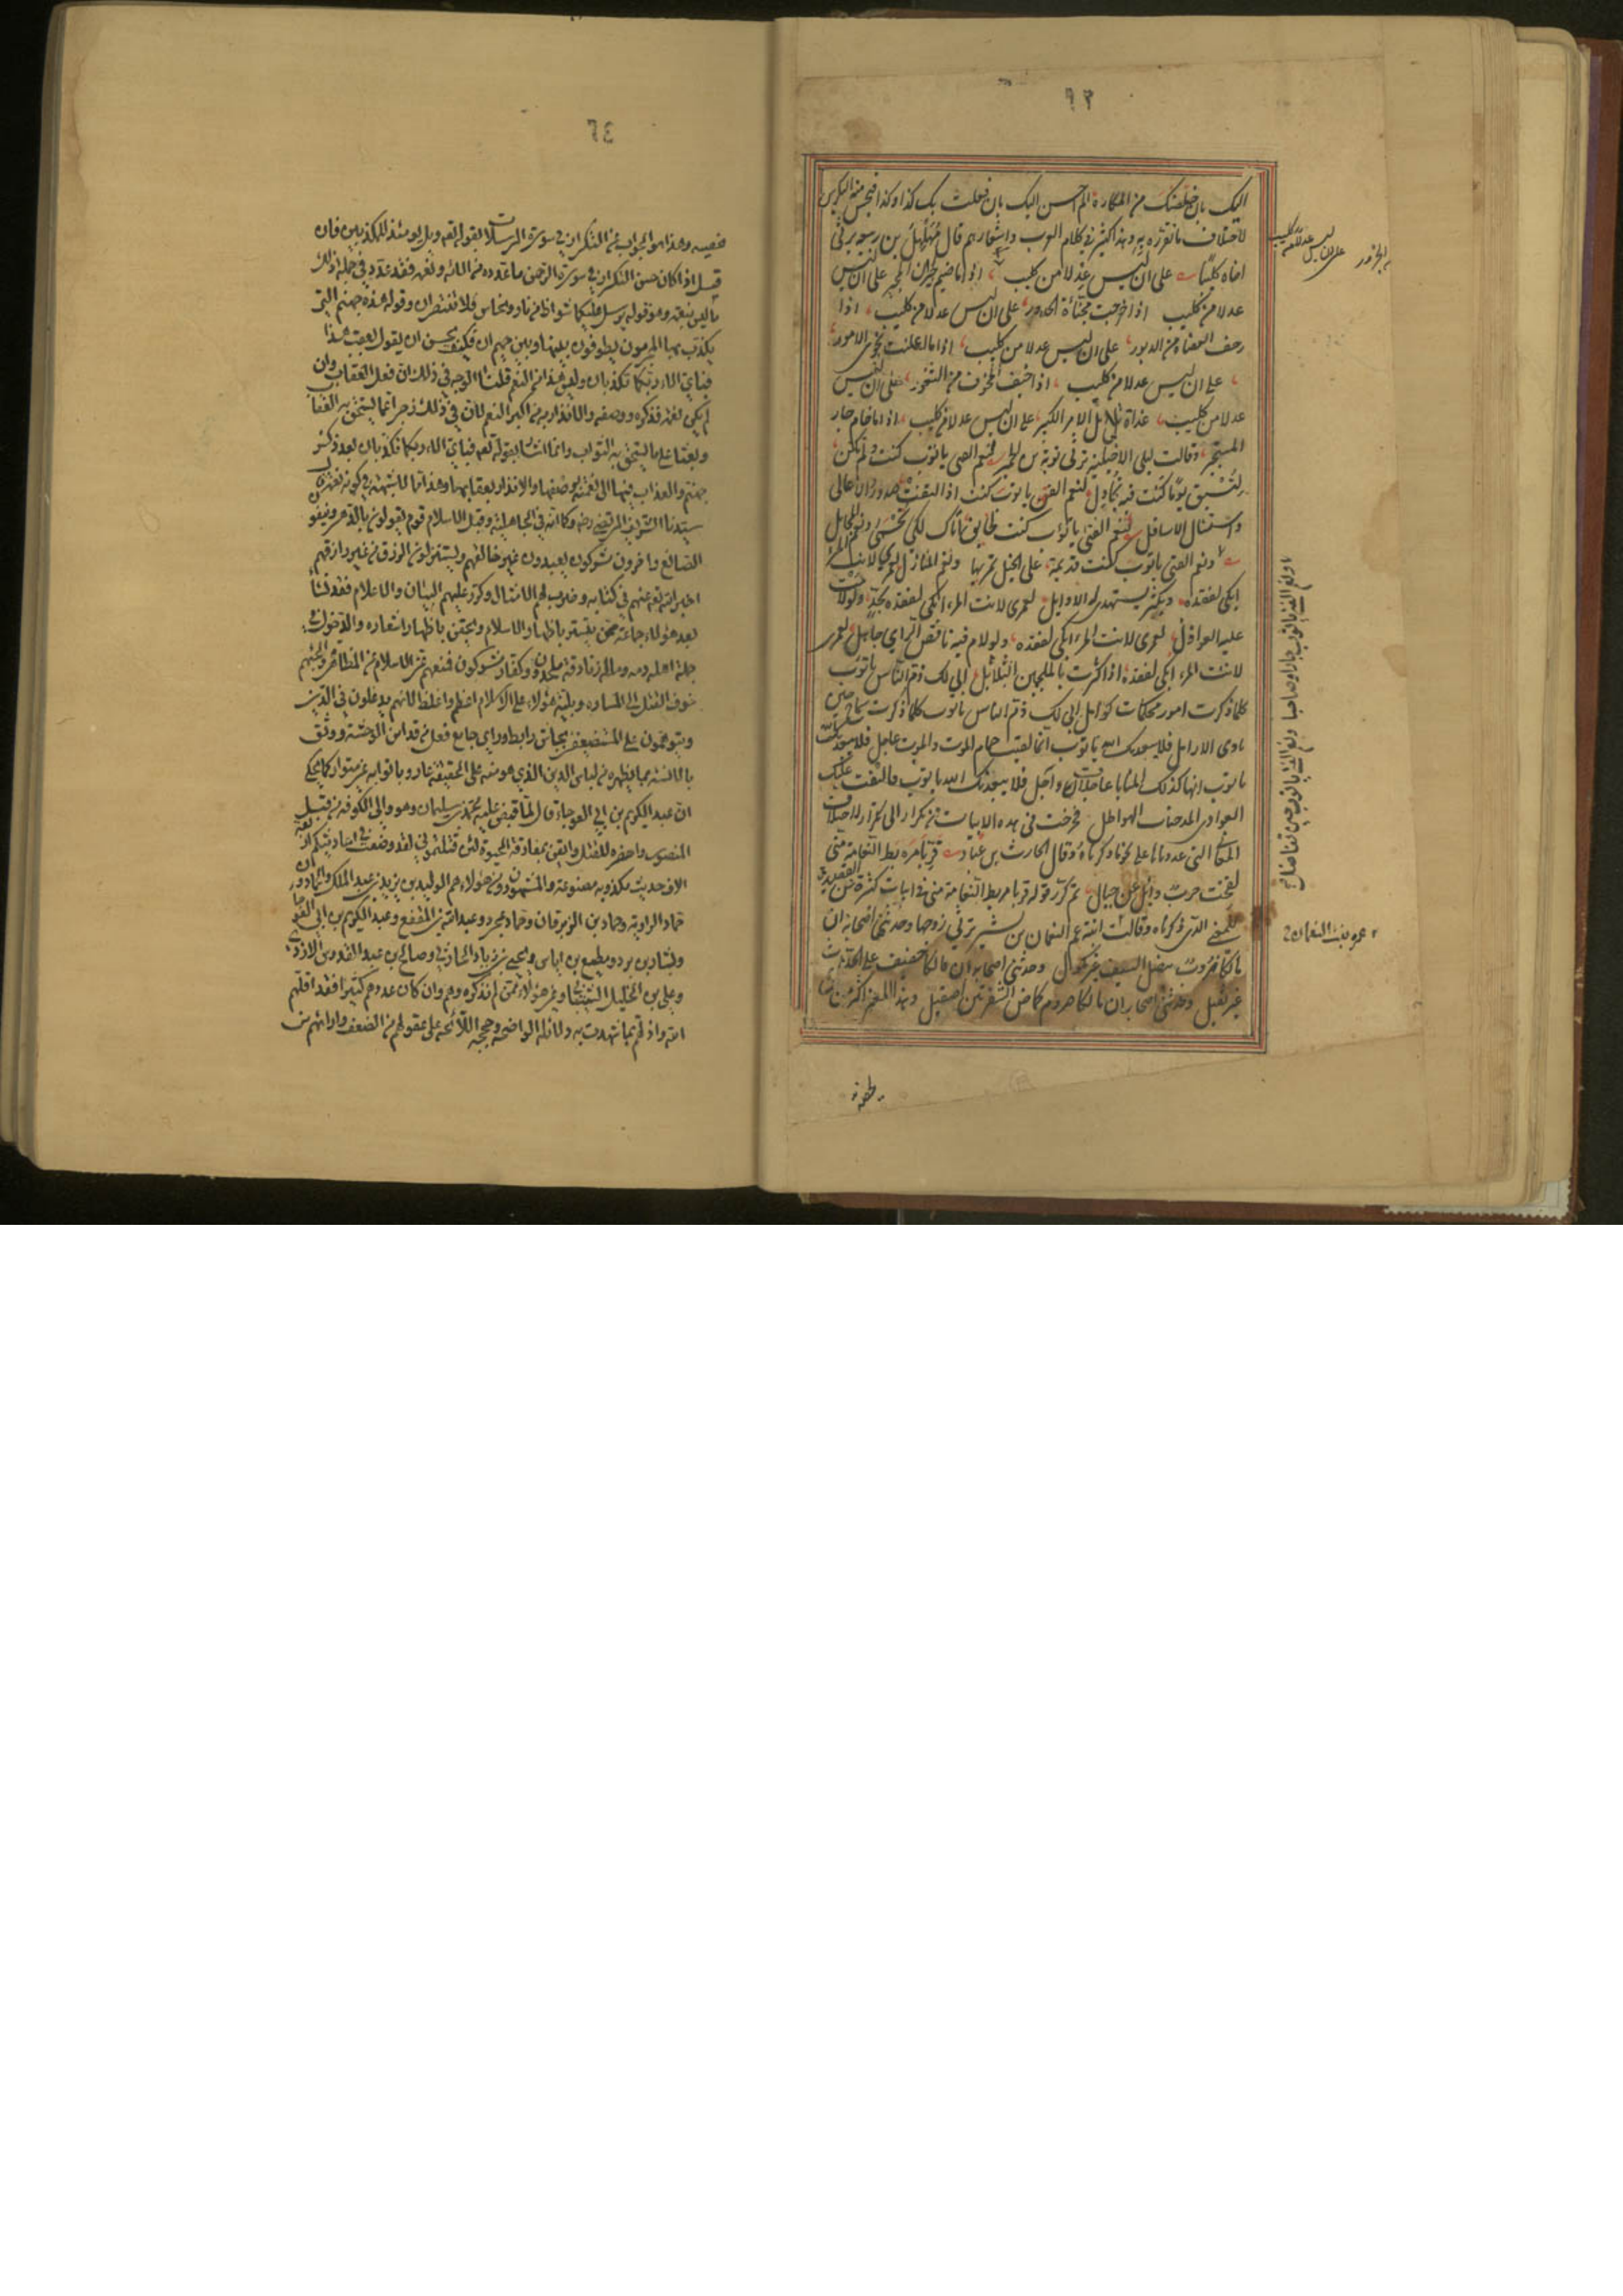 ٦٣
اليك بان خلصتك من المكاره الم احسن اليك بان فعلت بك كذا وكذا فيحسن منه التكرير
لاختلاف ما تقرره به وهذا كثير في كلام العرب واشعارهم قال مهلهل بن ربيعه يرثي
اخاه كليبا على ان ليس عدلا من كليب اذا ما ضيم جيران المجير على ان ليس
عدلا من كليب اذا خرجت مخباة الخدور على ان ليس عدلا من كليب اذا
رجف العضاه من الدبور على ان ليس عدلا من كليب اذا ما اعلنت نجوى الامور
على ان ليس عدلا من كليب اذا خيف المخوف من الثغور على ان ليس
عدلا من كليب غداة تلاتل الامر الكبير على ان ليس عدلا من كليب اذا ما خام جار
المستجير وقالت ليلى الاخيلية ترثي توبة بن الحمير لنعم الفتى يا توب كنت ولم تكن
لتسبق يوما كنت فيه تجاول لنعم الفتى يا توب كنت اذا التقت صدور العوالي
واستشال الاسافل لنعم الفتى يا توب كنت لخايف اتاك لكي تحمى ونعم المجامل
ونعم الفتى يا توب كنت
ابكي لفقده ويكثر تسهيدي له الاوايل لعمري لانت المرء ابكي لفقده بجد ولو لامت
عليه العواذل لعمري لانت المرء ابكي لفقده ولو لام فيه ناقص الراي جاهل لعمري
لانت المرء ابكي لفقده اذا كثرت بالملجمين البلابل ابى لك ذم الناس يا توب
كلما ذكرت امور محكمات كوامل ابى لك ذم الناس يا توب كلما ذكرت سماح حين
تاوي الارامل فلا يبعدنك الله يا توب انما لقيت حمام الموت والموت عاجل فلا يبعدنك الله
يا توب انها كذلك المنايا عاجلات واجل فلا يبعدنك الله يا توب والتقت عليك
الغوادي المدجنات الهواطل فخرجت في هذه الابيات من تكرار الى تكرار لاختلاف
المعاني التي عددناها على نحو ما ذكرناه وقال الحارث بن عباد قربا مربط النعامة مني
لقحت حرب وائل عن حيال ثم كرر قوله قربا مربط النعامة مني في ابيات كثيرة من القصيدة
للمعنى الذي ذكرناه وقالت ابنة عم النعمان بن بشير ترثي زوجها وحدثني اصحابه ان
مالكا ضروب بنصل السيف غير نكول وحدثني اصحابه ان مالكا خفيف على الحداث
غير ثقيل وحدثني اصحابه ان مالكا صروم كماضي الشفرتين صقيل وهذا المعنى اكثر من
على ان ليس عدلا من كليب
ونعم الفتى يا توب جارا وصاحبا ونعم الفتى يا توب حين تناضل
عمرة بنت النعمان
٦٤
نحصيه وهذا هو الجواب عن التكرار في سورة المرسلات بقوله تعه ويل يومئذ للمكذبين فان
قيل اذا كان حسن التكرار في سورة الرحمن ما عدده من الائه ونعمه فقد عدد في جملة ذلك
ما ليس بنعمه وهو قوله يرسل عليكما شواظ من نار ونحاس فلا تنتصران وقوله هذه جهنم التي
يكذب بها المجرمون يطوفون بينها وبين حميم ان فكيف يحسن ان يقول بعقب هذا
فباي الاء ربكما تكذبان وليس هذا من النعم قلنا الوجه في ذلك ان فعل العقاب وان
لم يكن نعمة فذكره ووصفه والانذار به من اكبر النعم لان في ذلك زجرا عما يستحق به العقاب
وبعثا على ما يستحق به الثواب وانما اشار بقوله تعه فباي الاء ربكما تكذبان بعد ذكر
جهنم والعذاب فيها الى نعمته بوصفها والانذار بعقابها وهذا مما لا يشتبه في كونه نعمة قال
سيدنا الشريف المرتضى رضه وكما انه في الجاهلية وقبل الاسلام قوم يقولون بالدهر وينفون
الصانع واخرون مشركون يعبدون غير خالقهم ويستنزلون الرزق من غير رازقهم
اخبر الله تعه عنهم في كتابه وضرب لهم الامثال وكرر عليهم البينات والاعلام فقد نشا
بعد هؤلاء جماعة ممن يتستر باظهار الاسلام ويحقن باظهار شعاره والدخول في
جملة اهله دمه وماله زنادقة ملحدون وكفار مشركون فمنعهم عز الاسلام عن المظاهرة والجاهم
خوف القتل الى المساترة وبلية هؤلاء على الاسلام اعظم واغلظ لانهم يدغلون في الدين
ويموهون على المستضعفين بجاش رابط وراي جامع فعل من قد امن الوحشة ووثق
بالانسة بما يظهره من لباس الدين الذي هو منه على الحقيقة عار وباثوابه غير متوار كما حكي
ان عبد الكريم بن ابي العوجاء قال لما قبض عليه محمد بن سليمان وهو والي الكوفة من قبل
المنصور واحضره للقتل وايقن بمفارقة الحيوة لئن قتلتموني لقد وضعت في احاديثكم اربعة
الاف حديث مكذوبه مصنوعة والمشهورون من هؤلاء هم الوليد بن يزيد بن عبد الملك والحمادون
حماد الراوية وحماد بن الزبرقان وحماد عجرد وعبد الله بن المقفع وعبد الكريم بن ابي العوجاء
وبشار بن برد ومطيع بن اياس ويحيى بن زياد الحارثي وصالح بن عبد القدوس الازدي
وعلي بن الخليل الشيباني وغير هؤلاء ممن لم نذكره وهم وان كان عددهم كثيرا فقد اقلهم
الله واذلهم بما شهدت به دلائله الواضحة وحججه اللائحة على عقولهم من الضعف وارائهم من